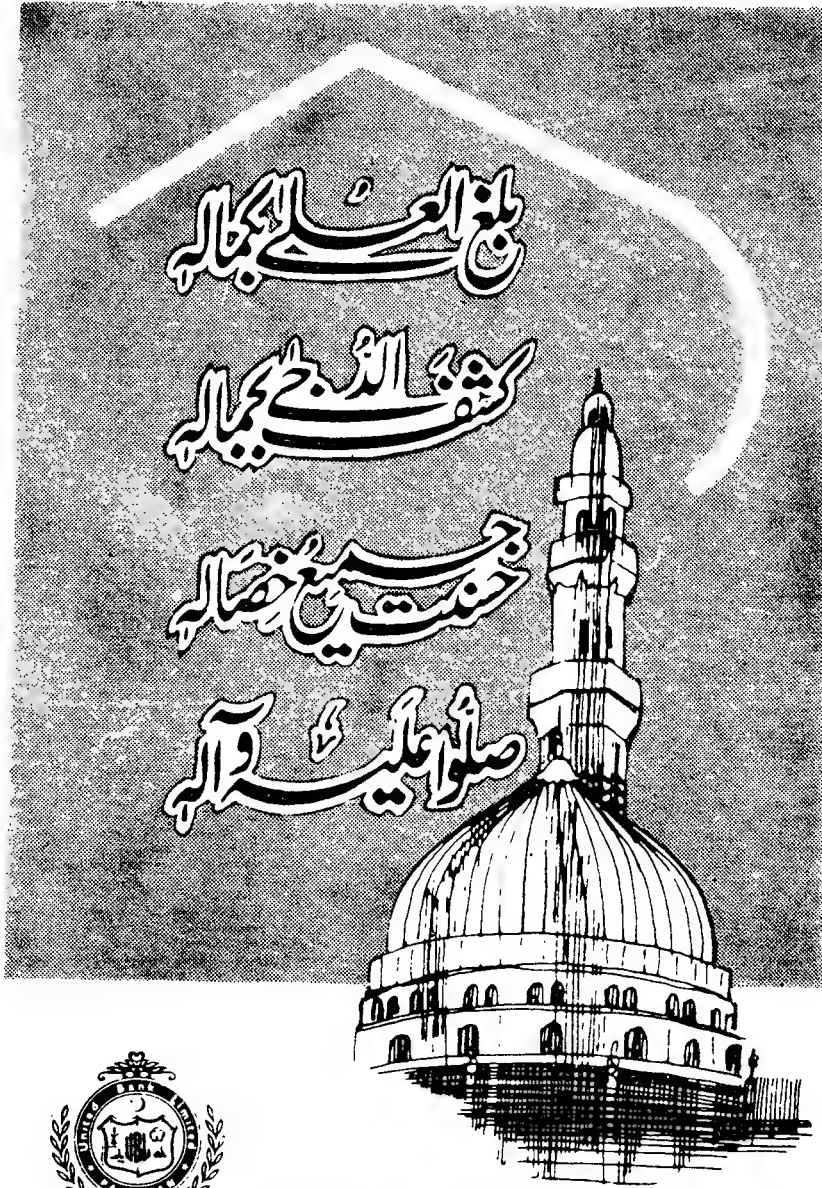 بلغ العلےٰ بکمالہٖ
کشف الدُّجےٰ بجمالہٖ
حسنت جمیع خصالہٖ
صلّوا علیہ وآلہٖ
United Bank Limited